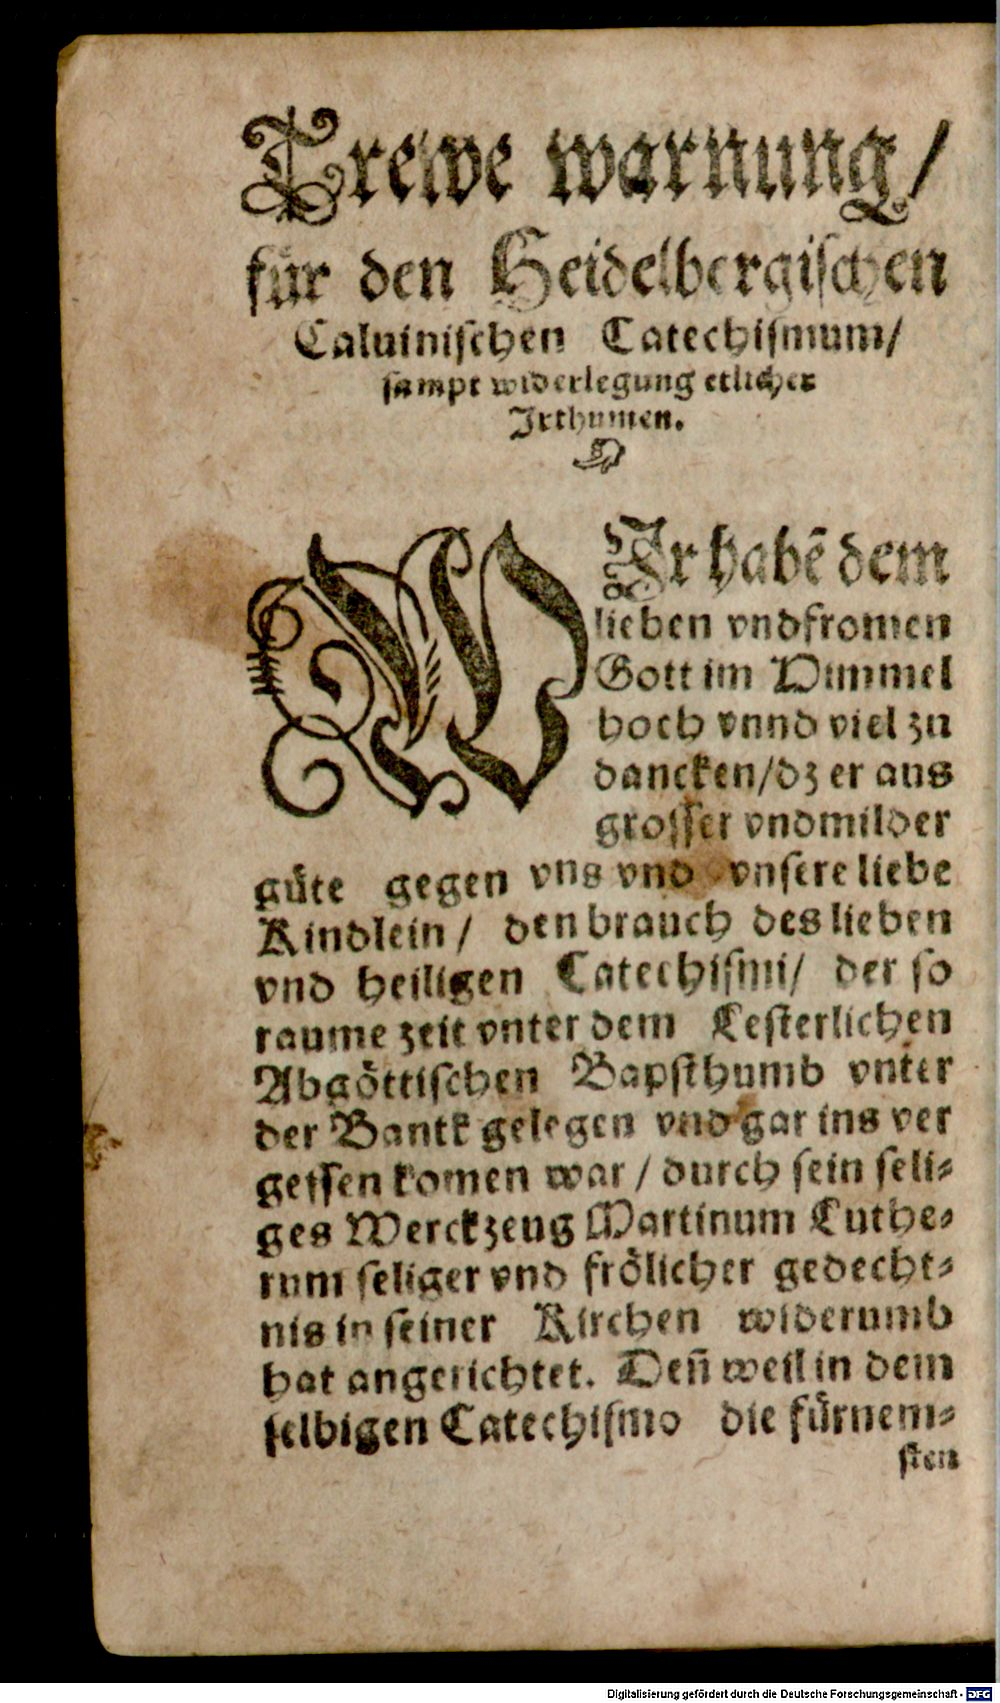 Trewe warnung/
für den Heidelbergischen
Caluinischen Catechismum/
sampt widerlegung etlicher
Irthumen.
WIr habē dem
lieben vnd fromen
Gott im Himmel
hoch vnnd viel zu
dancken/dz er aus
grosser vnd milder
güte gegen vns vnd vnsere liebe
Kindlein / den brauch des lieben
vnd heiligen Catechismi/ der so
raume zeit vnter dem Lesterlichen
Abgöttischen Bapsthumb vnter
der Banck gelegen vnd gar ins ver
gessen komen war / durch sein seli⸗
ges Werckzeug Martinum Luthe⸗
rum seliger vnd frölicher gedecht⸗
nis in seiner Kirchen widerumb
hat angerichtet. Deñ weil in dem
selbigen Catechismo die fürnem⸗
sten
Digitalisierung gefördert durch die Deutsche Forschungsgemeinschaft - DFG